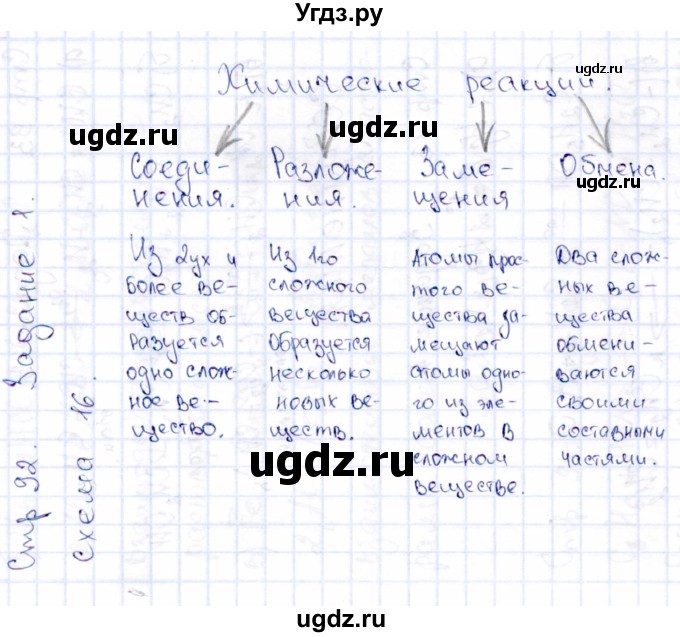 Угдз.ру
Химические реакции.
ugdz.ru
ugdz.ru
ugdz.ru
ugdz.ru
Соеди-
нения.
Разложе-
ния.
Заме-
щения
Обмена.
Из 2ух и
более ве-
ществ об-
разуется
одно слож-
ное ве-
щество.
Из 1го
сложного
вещества
образуется
несколько
новых ве-
ществ.
Атомы прос-
того ве-
щества за-
мещают
атомы одно-
го из эле-
ментов в
сложном
веществе.
Два слож-
ных ве-
щества
обмени-
ваются
своими
составными
частями.
Стр 92. Задание 1.
схема 16.
ugdz.ru
ugdz.ru
ugdz.ru